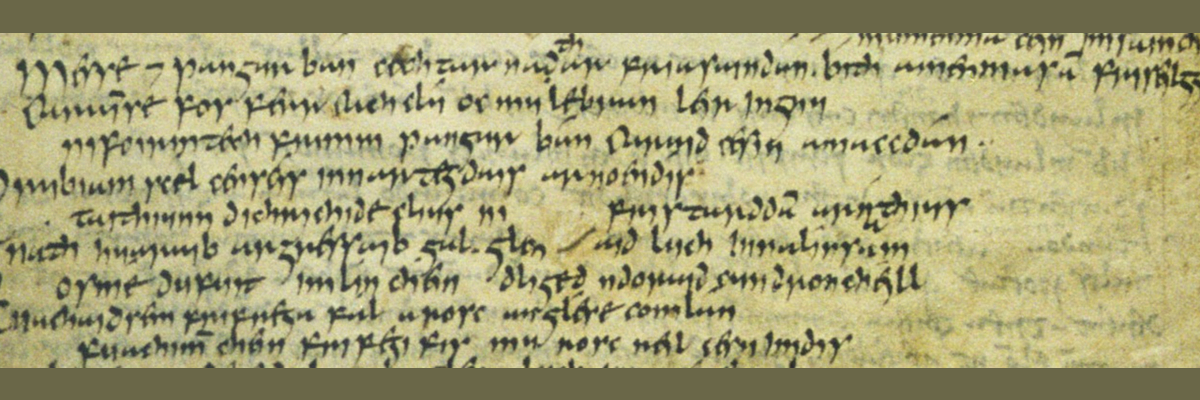 mumenma céin imsainch
Messe ⁊ pangur bán cechtar nathar friasaindan bíth amenmasā friseilg
Caraimse fos ferr cach clú oc mu lebran leir ingnu
nifoirmtech frimm pangur bán caraid cesin amaccdán
Orubiam scél censcís innar tegdais ar noendís
taithiunn dichrichide clius ni fristarddā arnáthius
Gnáth huaraib argressaib gal glenaid luch innalinsam
osme dufuit imlin chéin dliged ndoraid cundronchéill
Fuachaidsem frifrega fál arosc anglése comlán
fuachimm chein frifégi fis mu rosc reil cesu imdis